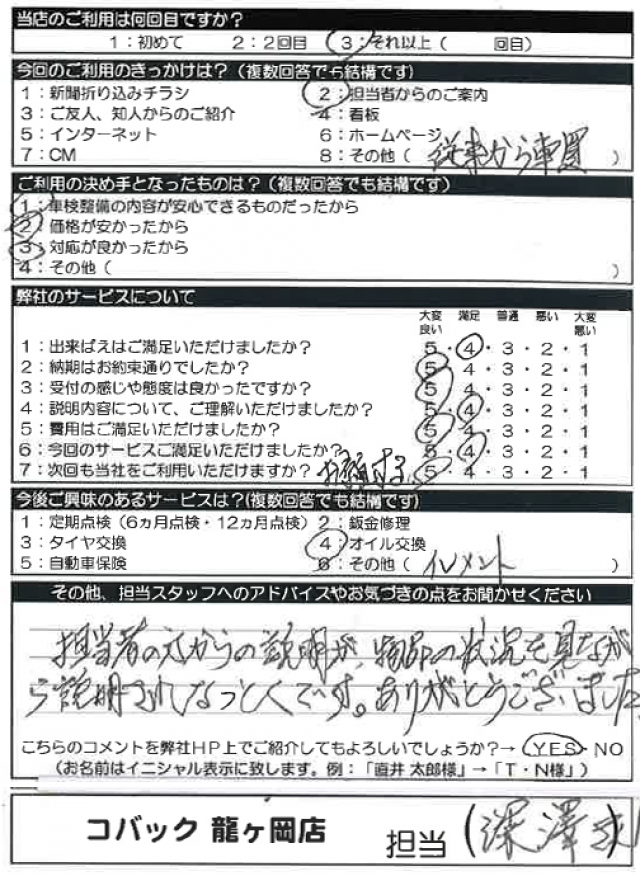 当店のご利用は何回目ですか？
1：初めて 2：2回目 3：それ以上（ 回目）
今回のご利用のきっかけは？（複数回答でも結構です）
1：新聞折り込みチラシ 2：担当者からのご案内
3：ご友人、知人からのご紹介 4：看板
5：インターネット 6：ホームページ
7：CM 8：その他（ 従来から車買 ）
ご利用の決め手となったものは？（複数回答でも結構です）
1：車検整備の内容が安心できるものだったから
2：価格が安かったから
3：対応が良かったから
4：その他（ ）
弊社のサービスについて
大変良い 満足 普通 悪い 大変悪い
1：出来ばえはご満足いただけましたか？ 5・4・3・2・1
2：納期はお約束通りでしたか？ 5・4・3・2・1
3：受付の感じや態度は良かったですか？ 5・4・3・2・1
4：説明内容について、ご理解いただけましたか？ 5・4・3・2・1
5：費用はご満足いただけましたか？ 5・4・3・2・1
6：今回のサービスご満足いただけましたか？ 5・4・3・2・1
7：次回も当社をご利用いただけますか？ お願する 5・4・3・2・1
今後ご興味のあるサービスは？(複数回答でも結構です)
1：定期点検（6ヵ月点検・12ヵ月点検） 2：鈑金修理
3：タイヤ交換 4：オイル交換
5：自動車保険 6：その他（ エレメント ）
その他、担当スタッフへのアドバイスやお気づきの点をお聞かせください
担当者の方からの説明が、物品の状況を見なが
ら説明され です。ありがとうございました
こちらのコメントを弊社HP上でご紹介してもよろしいでしょうか？→ YES・NO
（お名前はイニシャル表示に致します。例：「直井 太郎様」→「T・N様」）
コバック 龍ヶ岡店 担当（深澤